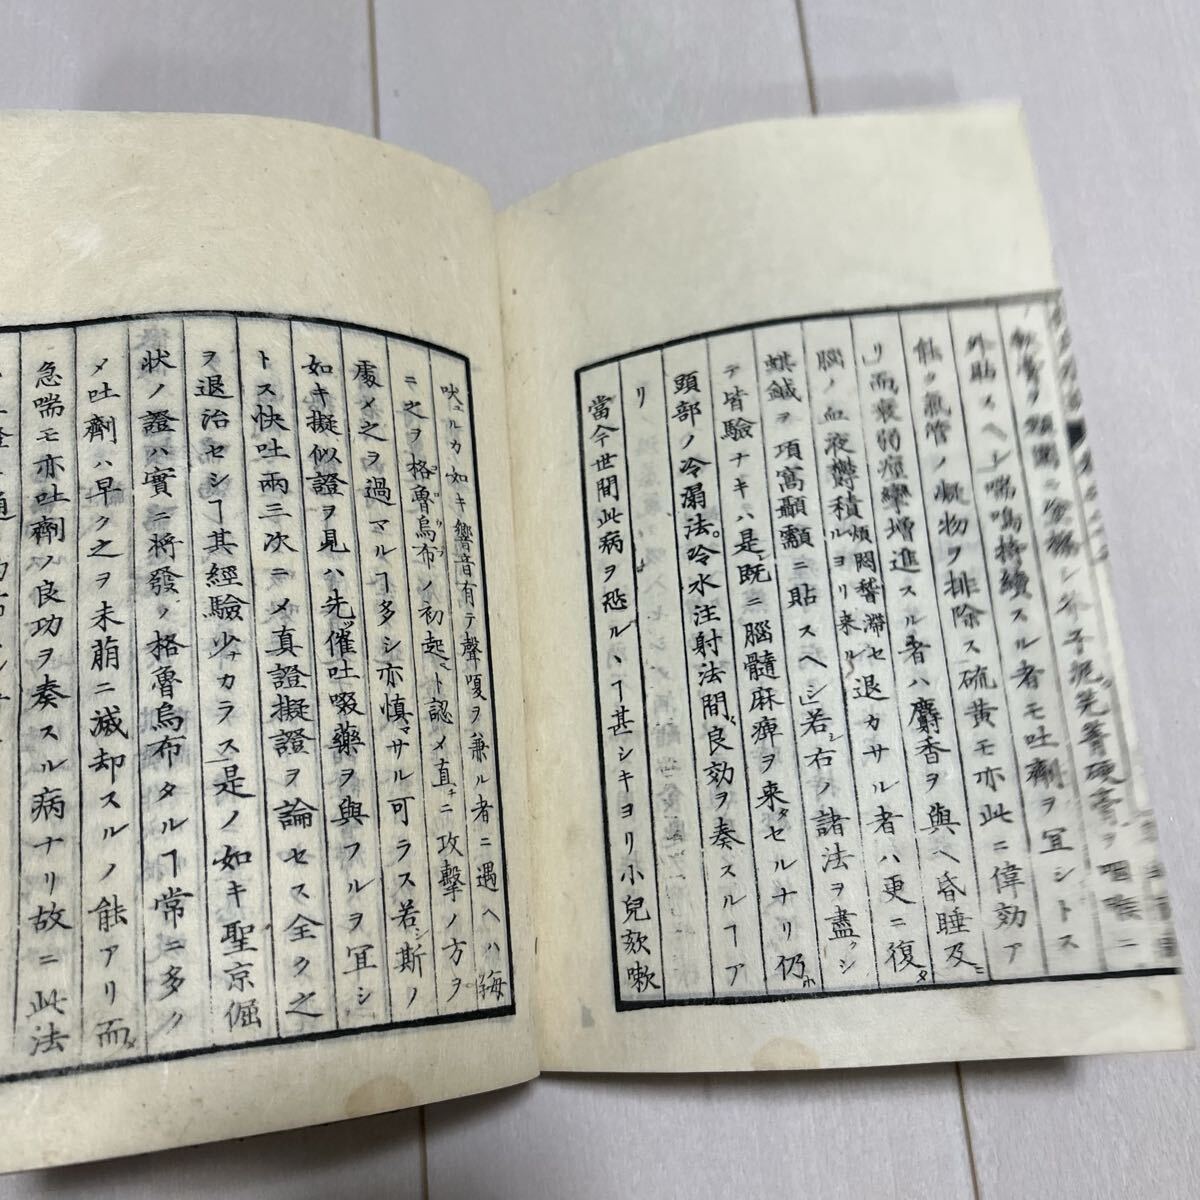 外貼スヘレ喘鳴持續スル者モ吐劑ヲ冝シトス
能ク氣管ノ凝物ヲ排除ス硫黄モ亦此ニ偉効ア
リ而衰弱痙攣增進スル者ハ麝香ヲ與ヘ昏睡及ニ
腦ノ血液欝積煩悶瞀滞セルヨリ来ル退カサル者ハ更ニ復タ
蜞鍼ヲ項窩顳顬ニ貼スヘシ若シ右ノ諸法ヲ盡クシ
テ皆驗ナキハ是レ既ニ腦髓麻痺ヲ来タセルナリ仍ホ
頭部ノ冷溻法。冷水注射法間良効ヲ奏スルヿア
リ
當今世間此病ヲ恐ルヽヿ甚シキヨリ小兒欬嗽
吠ユルカ如キ響音有テ聲嗄ヲ兼ル者ニ遇ヘハ每
ニ之ヲ格魯烏布ノ初起ト認メ直チニ攻擊ノ方ヲ
處メ之ヲ過マルヿ多シ亦慎マサル可ラス若シ斯ノ
如キ擬似證ヲ見ハ先ツ催吐啜藥ヲ與フルヲ冝シ
トス快吐兩三次ニメ真證擬證ヲ論セス全ク之
ヲ退治セシヿ其經驗少ナカラス是ノ如キ聖京倔
状ノ證ハ實ニ将發ノ格魯烏布タルヿ常ニ多ク
メ吐劑ハ早ク之ヲ未萠ニ滅却スルノ能アリ而メ
急喘モ亦吐劑ノ良功ヲ奏スル病ナリ故ニ此法